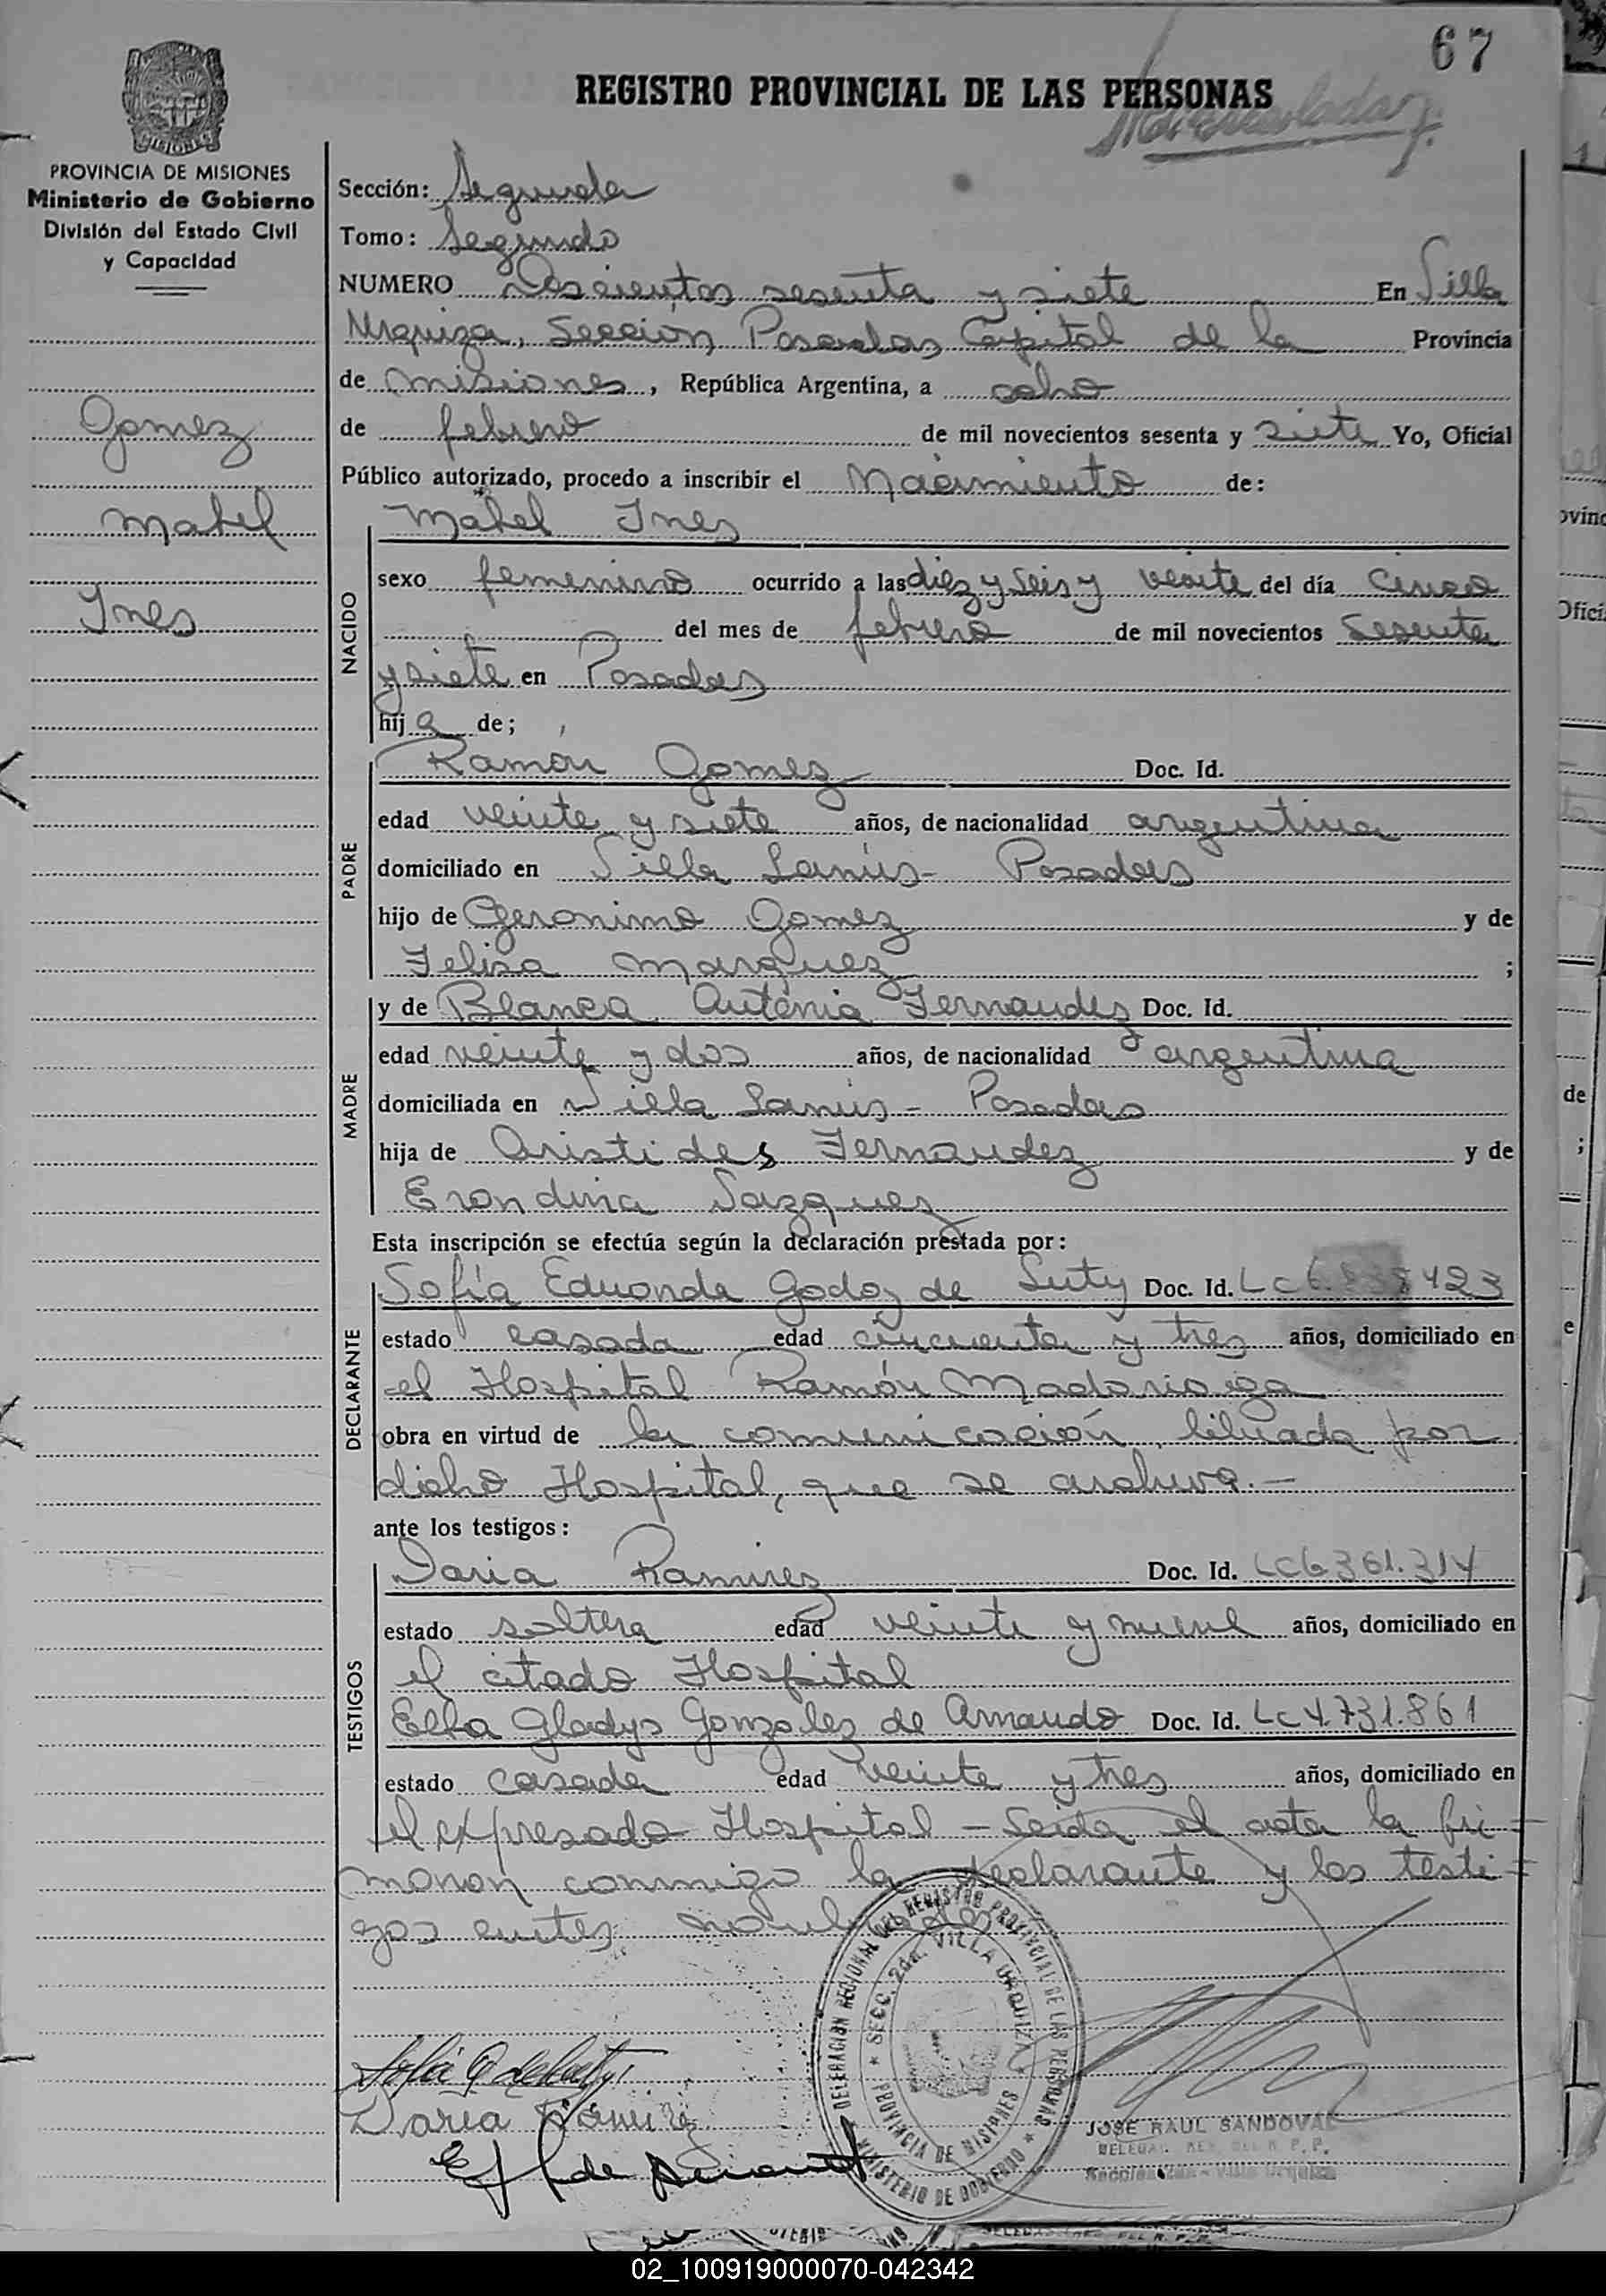 67
REGISTRO PROVINCIAL DE LAS PERSONAS
MISIONES
PROVINCIA DE MISIONES
Ministerio de Gobierno
División del Estado Civil
y Capacidad
Gomez
Mabel
Ines
Sección: Segunda
Tomo: Segundo
NUMERO Doscientos sesenta y siete En Villa
Urquiza, Sección Posadas Capital de la Provincia
de Misiones, República Argentina, a ocho
de febrero de mil novecientos sesenta y siete Yo, Oficial
Público autorizado, procedo a inscribir el Nacimiento de:
NACIDO
Mabel Ines
sexo femenino ocurrido a las diez y seis y veinte del día cinco
del mes de febrero de mil novecientos sesenta
y siete en Posadas
hij a de;
PADRE
Ramón Gomez Doc. Id.
edad veinte y siete años, de nacionalidad argentina
domiciliado en Villa Lanús - Posadas
hijo de Geronimo Gomez y de
Felisa Marquez ;
MADRE
y de Blanca Antonia Fernandez Doc. Id.
edad veinte y dos años, de nacionalidad argentina
domiciliada en Villa Lanús - Posadas
hija de Aristides Fernandez y de
Erondina Vazquez
Esta inscripción se efectúa según la declaración prestada por:
DECLARANTE
Sofía Eduonda Godoy de Luty Doc. Id. LC 423
estado casada edad cincuenta y tres años, domiciliado en
el Hospital Ramón Madariaga
obra en virtud de la comunicación librada por
dicho Hospital, que se archiva.-
ante los testigos:
TESTIGOS
Daria Ramirez Doc. Id. LC 6361.314
estado soltera edad veinte y nueve años, domiciliado en
el citado Hospital
Elba Gladys Gonzales de Amando Doc. Id. LC 4.731.861
estado casada edad veinte y tres años, domiciliado en
el expresado Hospital - Leida el acta la fir-
maron conmigo la declarante y los testi-
gos antes nombrados
DELEGACION REGIONAL DEL REGISTRO PROVINCIAL DE LAS PERSONAS
SECC. 2da. VILLA URQUIZA
PROVINCIA DE MISIONES
MINISTERIO DE GOBIERNO
Sofía G de Luty
Daria Ramirez
JOSE RAUL SANDOVAL
02_100919000070-042342